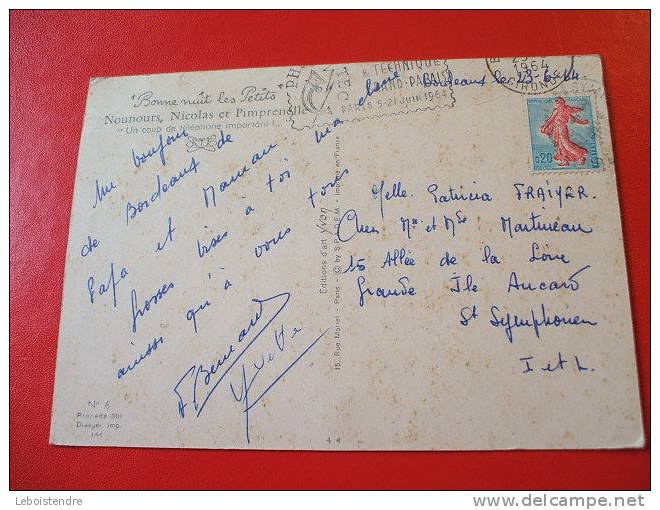 "Bonne nuit les Petits"
Nounours, Nicolas et Pimprenelle
"Un coup de téléphone important !...
RTF
PH
TEC
& TECHNIQUE
PARIS 5-21 JUIN 1964
1964
GIRONDE
0,20
Bordeaux le 23-6-64
Un bonjour
de Bordeaux de
Papa et Maman.
Grosses bises à toi
ainsi qu'à vous tous
F Bernard
Yvette
Melle Patricia FRAIYER.
Chez Mr et Me Martineau
15 Allée de la Loire
Grande Ile Aucard
St Symphorien
I et L.
Editions d'art Yvon
15, Rue Martel - Paris - © by S.P.D.E.M. - Imprimé en France
N° 6
Procédé 301
Draeger, Imp.
144
44
Leboistendre
delcampe.net